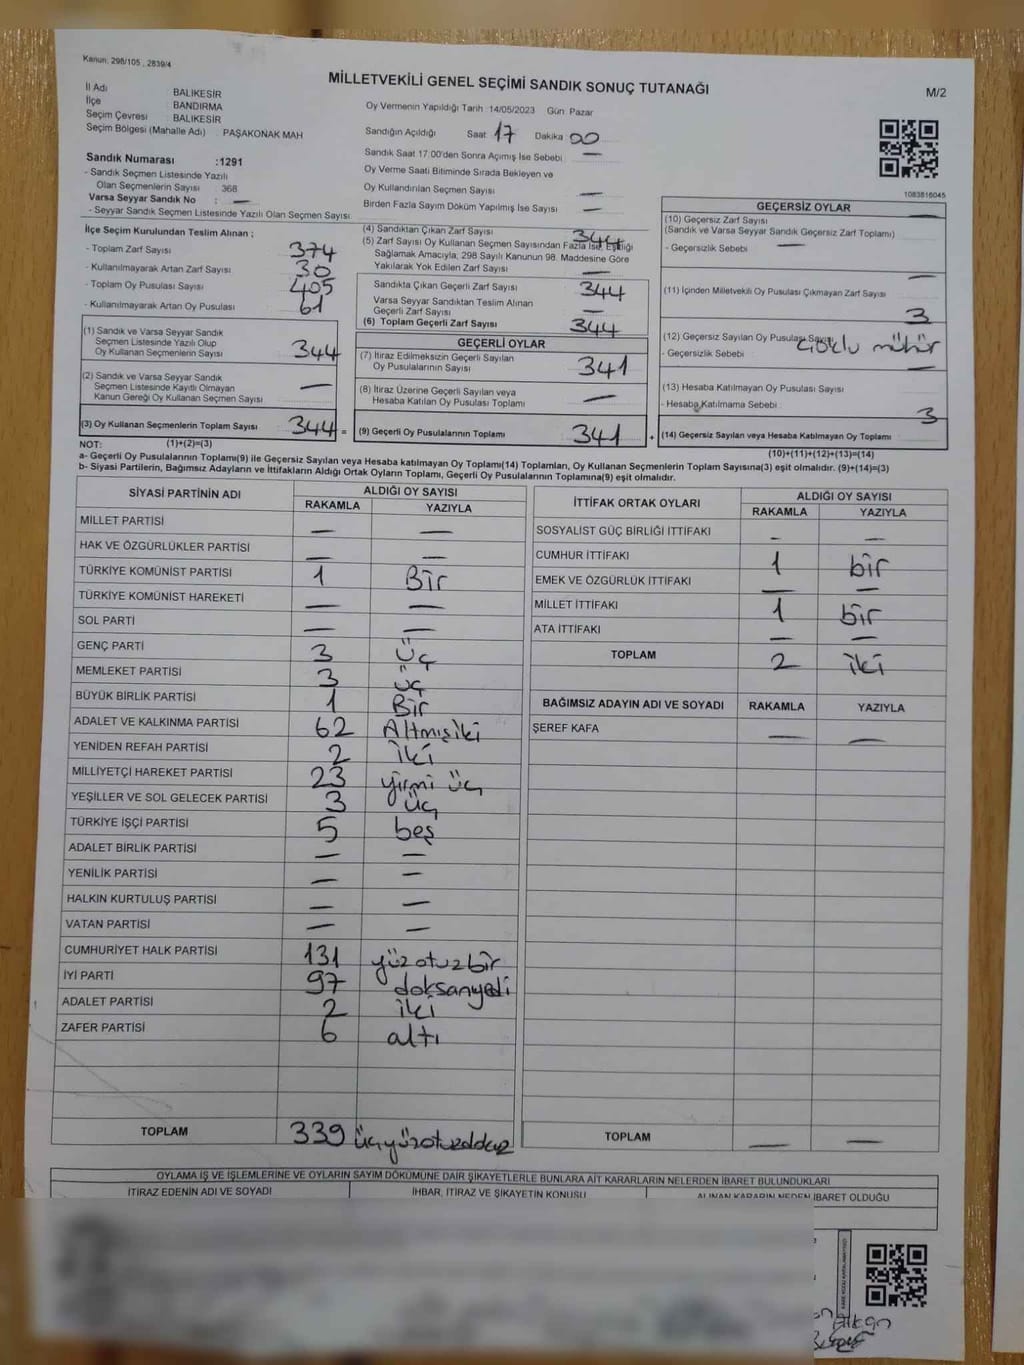 Kanun: 298/105 , 2839/4
MİLLETVEKİLİ GENEL SEÇİMİ SANDIK SONUÇ TUTANAĞI
M/2
İl Adı BALIKESİR
İlçe BANDIRMA
Seçim Çevresi : BALIKESİR
Seçim Bölgesi (Mahalle Adı) : PAŞAKONAK MAH
Sandık Numarası :1291
- Sandık Seçmen Listesinde Yazılı
Olan Seçmenlerin Sayısı 368
Varsa Seyyar Sandık No : —
- Seyyar Sandık Seçmen Listesinde Yazılı Olan Seçmen Sayısı
Oy Vermenin Yapıldığı Tarih :14/05/2023 Gün Pazar
Sandığın Açıldığı Saat 17 Dakika 00
Sandık Saat 17:00'den Sonra Açımış İse Sebebi —
Oy Verme Saati Bitiminde Sırada Bekleyen ve
Oy Kullandırılan Seçmen Sayısı —
Birden Fazla Sayım Döküm Yapılmış İse Sayısı —
1083816045
İlçe Seçim Kurulundan Teslim Alınan ;
- Toplam Zarf Sayısı 374
- Kullanılmayarak Artan Zarf Sayısı 30
- Toplam Oy Pusulası Sayısı 405
- Kullanılmayarak Artan Oy Pusulası 61
(1) Sandık ve Varsa Seyyar Sandık
Seçmen Listesinde Yazılı Olup
Oy Kullanan Seçmenlerin Sayısı 344
(2) Sandık ve Varsa Seyyar Sandık
Seçmen Listesinde Kayıtlı Olmayan
Kanun Gereği Oy Kullanan Seçmen Sayısı —
(3) Oy Kullanan Seçmenlerin Toplam Sayısı 344 =
(4) Sandıktan Çıkan Zarf Sayısı 344
(5) Zarf Sayısı Oy Kullanan Seçmen Sayısından Fazla İse, Eşitliği
Sağlamak Amacıyla; 298 Sayılı Kanunun 98. Maddesine Göre
Yakılarak Yok Edilen Zarf Sayısı —
Sandıkta Çıkan Geçerli Zarf Sayısı 344
Varsa Seyyar Sandıktan Teslim Alınan
Geçerli Zarf Sayısı —
(6) Toplam Geçerli Zarf Sayısı 344
GEÇERLİ OYLAR
(7) İtiraz Edilmeksizin Geçerli Sayılan
Oy Pusulalarının Sayısı 341
(8) İtiraz Üzerine Geçerli Sayılan veya
Hesaba Katılan Oy Pusulası Toplamı —
(9) Geçerli Oy Pusulalarının Toplamı 341 +
GEÇERSİZ OYLAR
(10) Geçersiz Zarf Sayısı —
(Sandık ve Varsa Seyyar Sandık Geçersiz Zarf Toplamı)
- Geçersizlik Sebebi —
(11) İçinden Milletvekili Oy Pusulası Çıkmayan Zarf Sayısı —
(12) Geçersiz Sayılan Oy Pusulası Sayısı 3
- Geçersizlik Sebebi çoklu mühür
(13) Hesaba Katılmayan Oy Pusulası Sayısı —
- Hesaba Katılmama Sebebi
(14) Geçersiz Sayılan veya Hesaba Katılmayan Oy Pusulası Toplamı 3
NOT: (1)+(2)=(3)
(10)+(11)+(12)+(13)=(14)
a- Geçerli Oy Pusulalarının Toplamı(9) ile Geçersiz Sayılan veya Hesaba katılmayan Oy Toplamı(14) Toplamları, Oy Kullanan Seçmenlerin Toplam Sayısına(3) eşit olmalıdır. (9)+(14)=(3)
b- Siyasi Partilerin, Bağımsız Adayların ve İttifakların Aldığı Ortak Oyların Toplamı, Geçerli Oy Pusulalarının Toplamına(9) eşit olmalıdır.
SİYASİ PARTİNİN ADI ALDIĞI OY SAYISI
RAKAMLA YAZIYLA
MİLLET PARTİSİ — —
HAK VE ÖZGÜRLÜKLER PARTİSİ — —
TÜRKİYE KOMÜNİST PARTİSİ 1 Bir
TÜRKİYE KOMÜNİST HAREKETİ — —
SOL PARTİ — —
GENÇ PARTİ 3 Üç
MEMLEKET PARTİSİ 3 üç
BÜYÜK BİRLİK PARTİSİ 1 Bir
ADALET VE KALKINMA PARTİSİ 62 Altmışiki
YENİDEN REFAH PARTİSİ 2 iki
MİLLİYETÇİ HAREKET PARTİSİ 23 yirmi üç
YEŞİLLER VE SOL GELECEK PARTİSİ 3 üç
TÜRKİYE İŞÇİ PARTİSİ 5 beş
ADALET BİRLİK PARTİSİ — —
YENİLİK PARTİSİ — —
HALKIN KURTULUŞ PARTİSİ — —
VATAN PARTİSİ — —
CUMHURİYET HALK PARTİSİ 131 yüzotuzbir
İYİ PARTİ 97 doksanyedi
ADALET PARTİSİ 2 iki
ZAFER PARTİSİ 6 altı
TOPLAM 339 üçyüzotuzdokuz
İTTİFAK ORTAK OYLARI ALDIĞI OY SAYISI
RAKAMLA YAZIYLA
SOSYALİST GÜÇ BİRLİĞİ İTTİFAKI — —
CUMHUR İTTİFAKI 1 bir
EMEK VE ÖZGÜRLÜK İTTİFAKI — —
MİLLET İTTİFAKI 1 bir
ATA İTTİFAKI — —
TOPLAM 2 iki
BAĞIMSIZ ADAYIN ADI VE SOYADI RAKAMLA YAZIYLA
ŞEREF KAFA — —
TOPLAM — —
OYLAMA İŞ VE İŞLEMLERİNE VE OYLARIN SAYIM DÖKÜMÜNE DAİR ŞİKAYETLERLE BUNLARA AİT KARARLARIN NELERDEN İBARET BULUNDUKLARI
İTİRAZ EDENİN ADI VE SOYADI İHBAR, İTİRAZ VE ŞİKAYETİN KONUSU ALINAN KARARIN NEDEN İBARET OLDUĞU